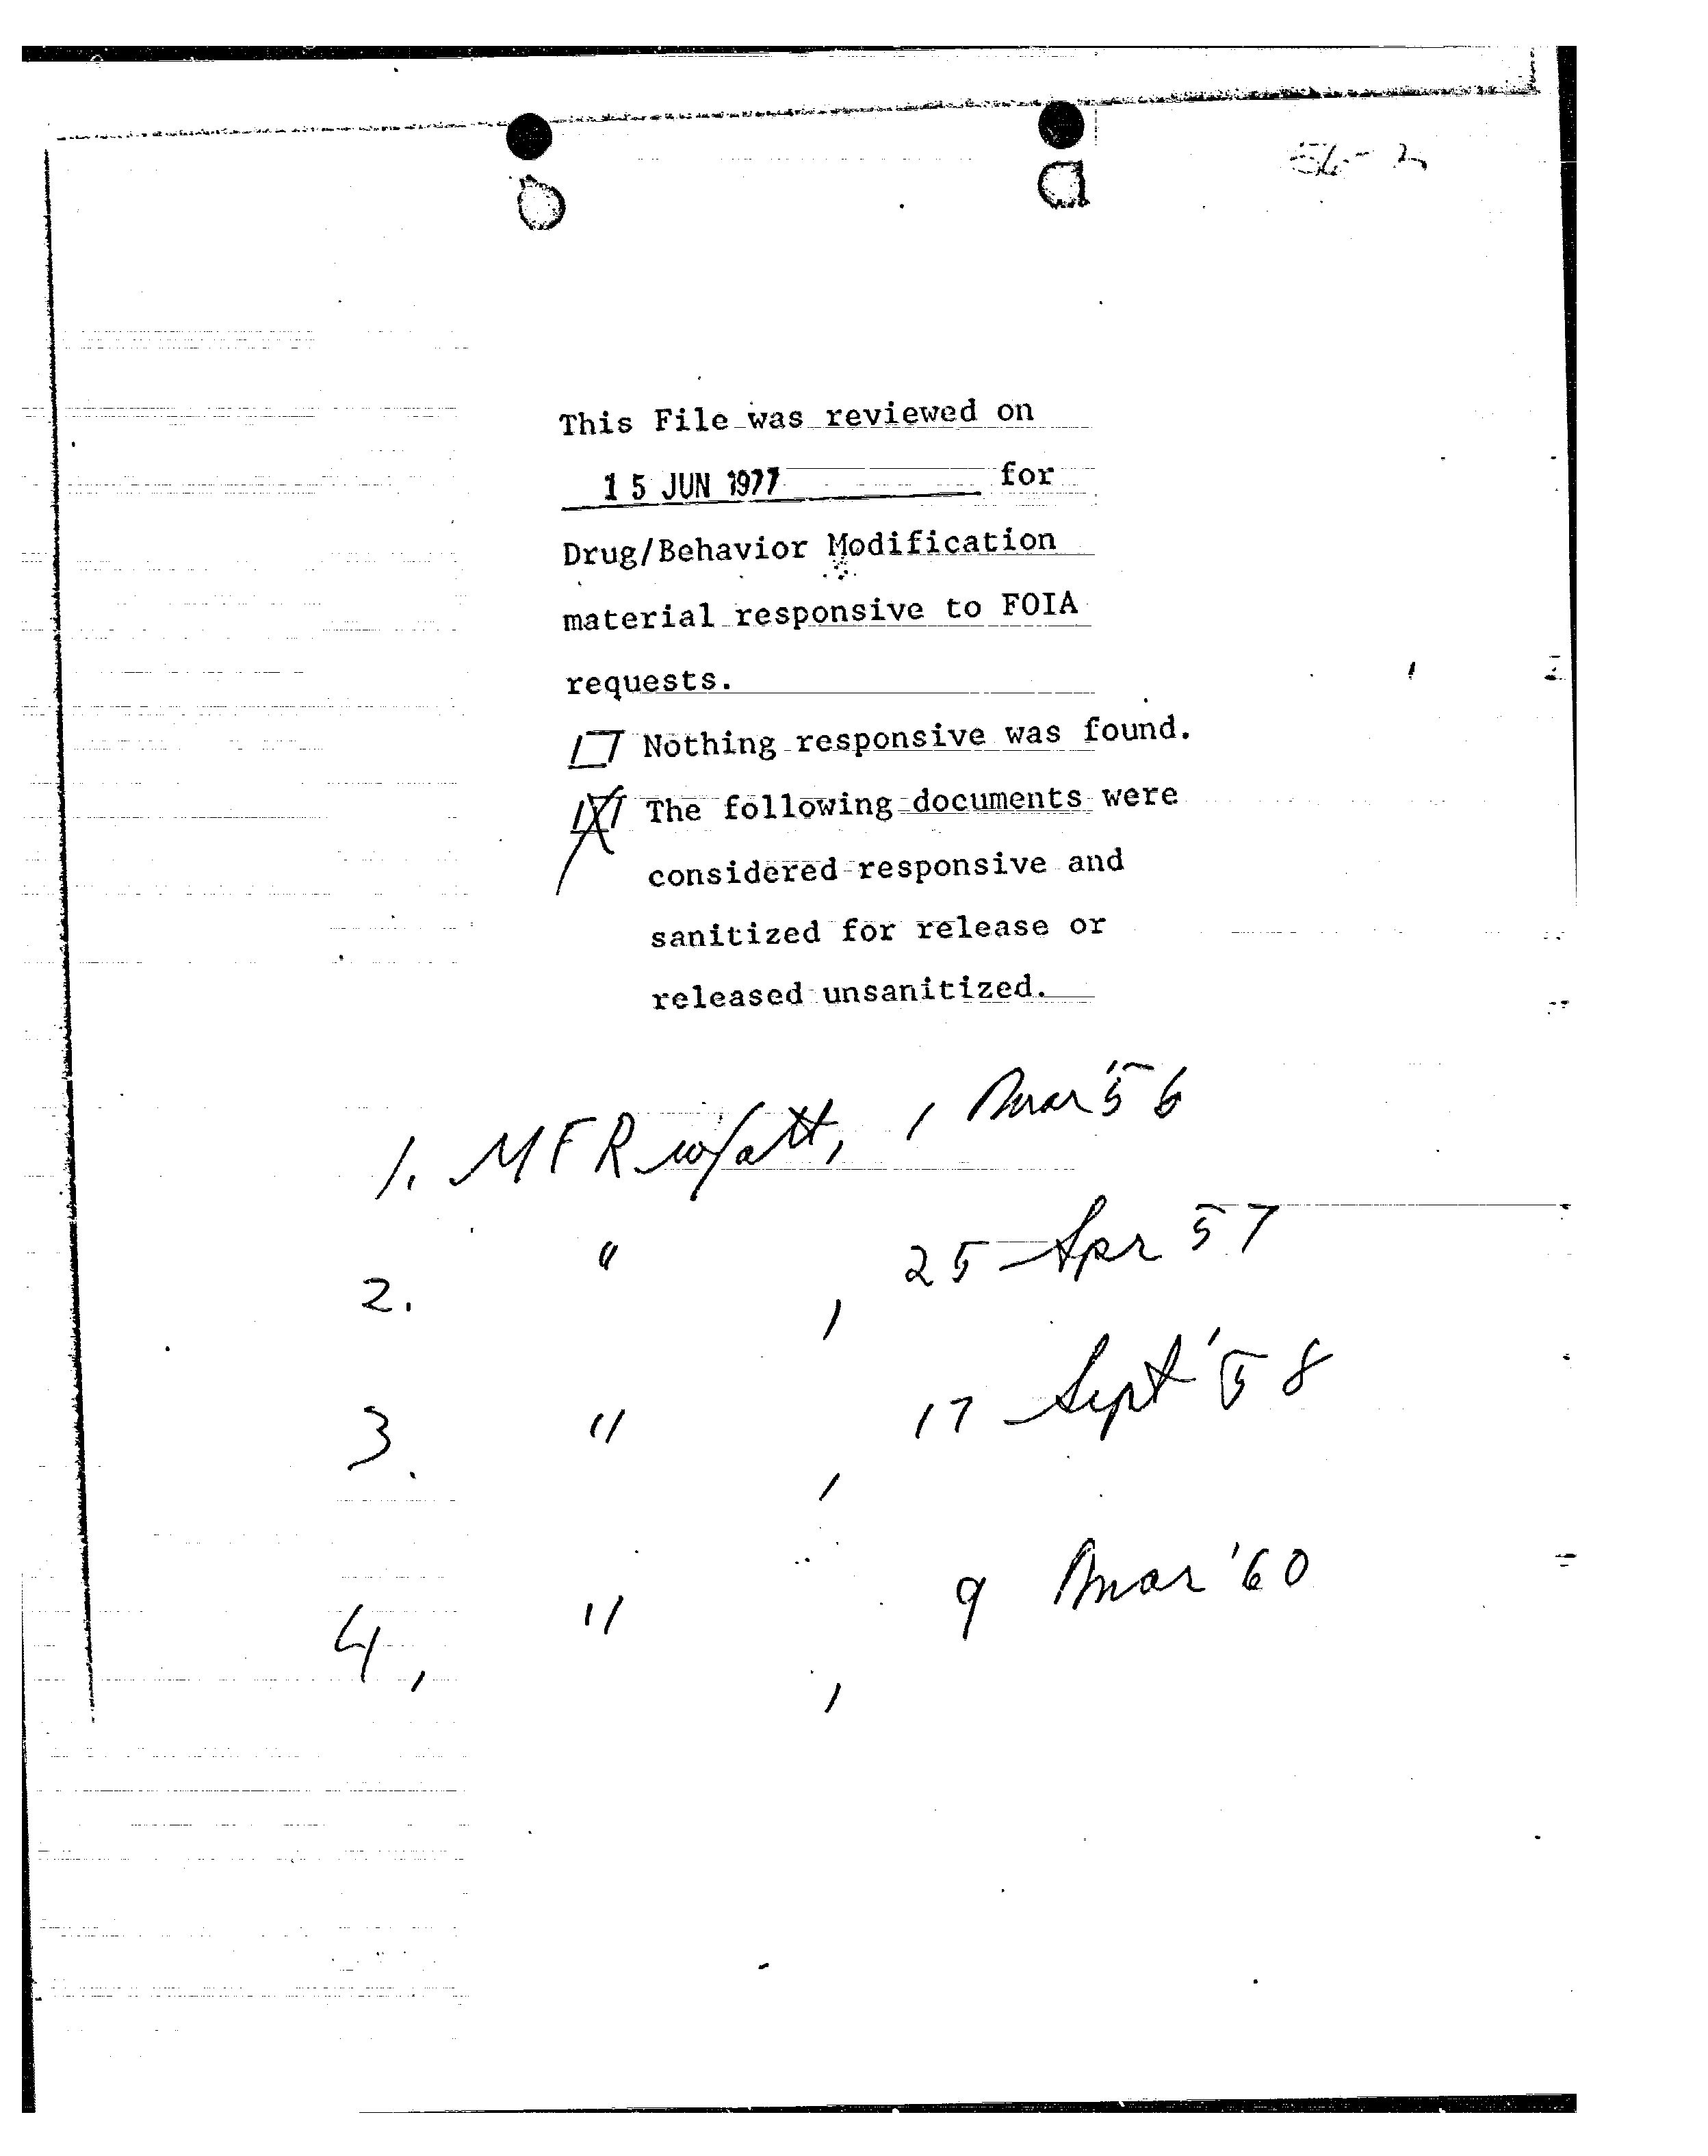 56-2
This File was reviewed on
15 JUN 1977 for
Drug/Behavior Modification
material responsive to FOIA
requests.
Nothing responsive was found.
X The following documents were
considered responsive and
sanitized for release or
released unsanitized.
1. MFR w/att, 1 Mar '56
2. " , 25 Apr 57
3. " , 17 Sept '58
4. " , 9 Mar '60